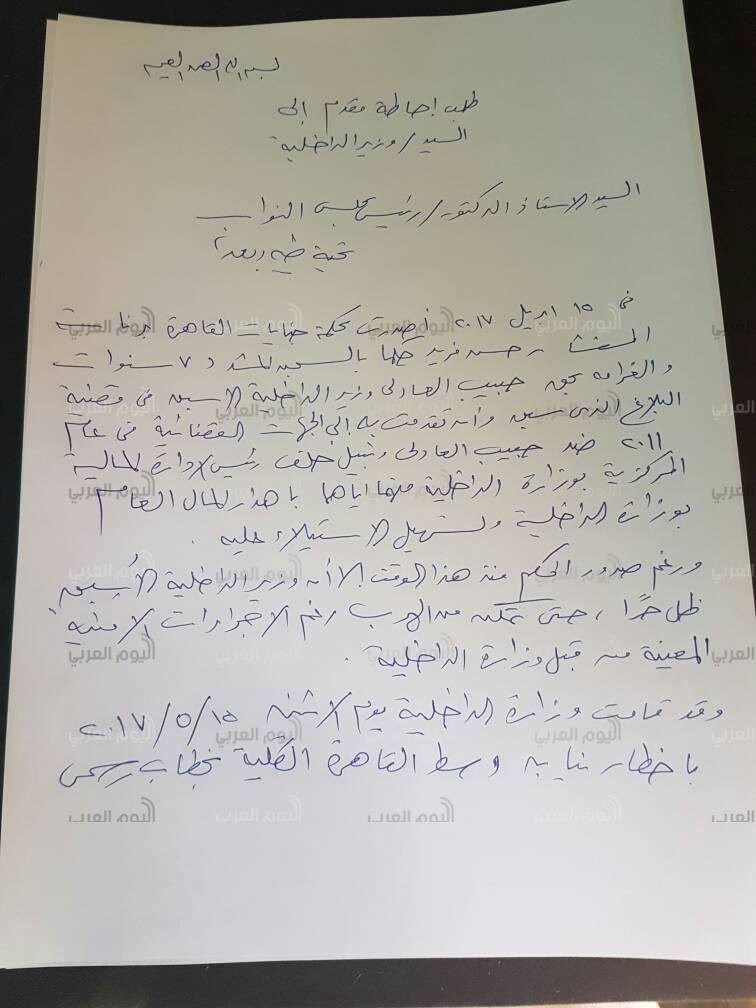 بسم الله الرحمن الرحيم
طلب إحاطة مقدم إلى
السيد/ وزير الداخلية
السيد الاستاذ الدكتور/ رئيس مجلس النواب
تحية طيبة وبعد،
فى ١٥ ابريل ٢٠١٧ أصدرت محكمة جنايات القاهرة برئاسة
المستشار حسن فريد حكما بالسجن المشدد ٧ سنوات
والغرامة بحق حبيب العادلى وزير الداخلية الاسبق فى قضية
البلاغ الذى سبق وأن تقدمت به إلى الجهات القضائية فى عام
٢٠١١ ضد حبيب العادلى ونبيل خلف رئيس الادارة المالية
المركزية بوزارة الداخلية متهما اياها باهدار المال العام
بوزارة الداخلية وتسهيل الاستيلاء عليه .
ورغم صدور الحكم منذ هذا الوقت إلا أن وزير الداخلية الأسبق
ظل حرًا ، حتى تمكن من الهرب رغم الاجراءات الامنية
المعينة من قبل وزارة الداخلية .
وقد قامت وزارة الداخلية يوم الاثنين ٢٠١٧/٥/١٥
باخطار نيابة وسط القاهرة الكلية بخطاب رسمى
اليوم العربي